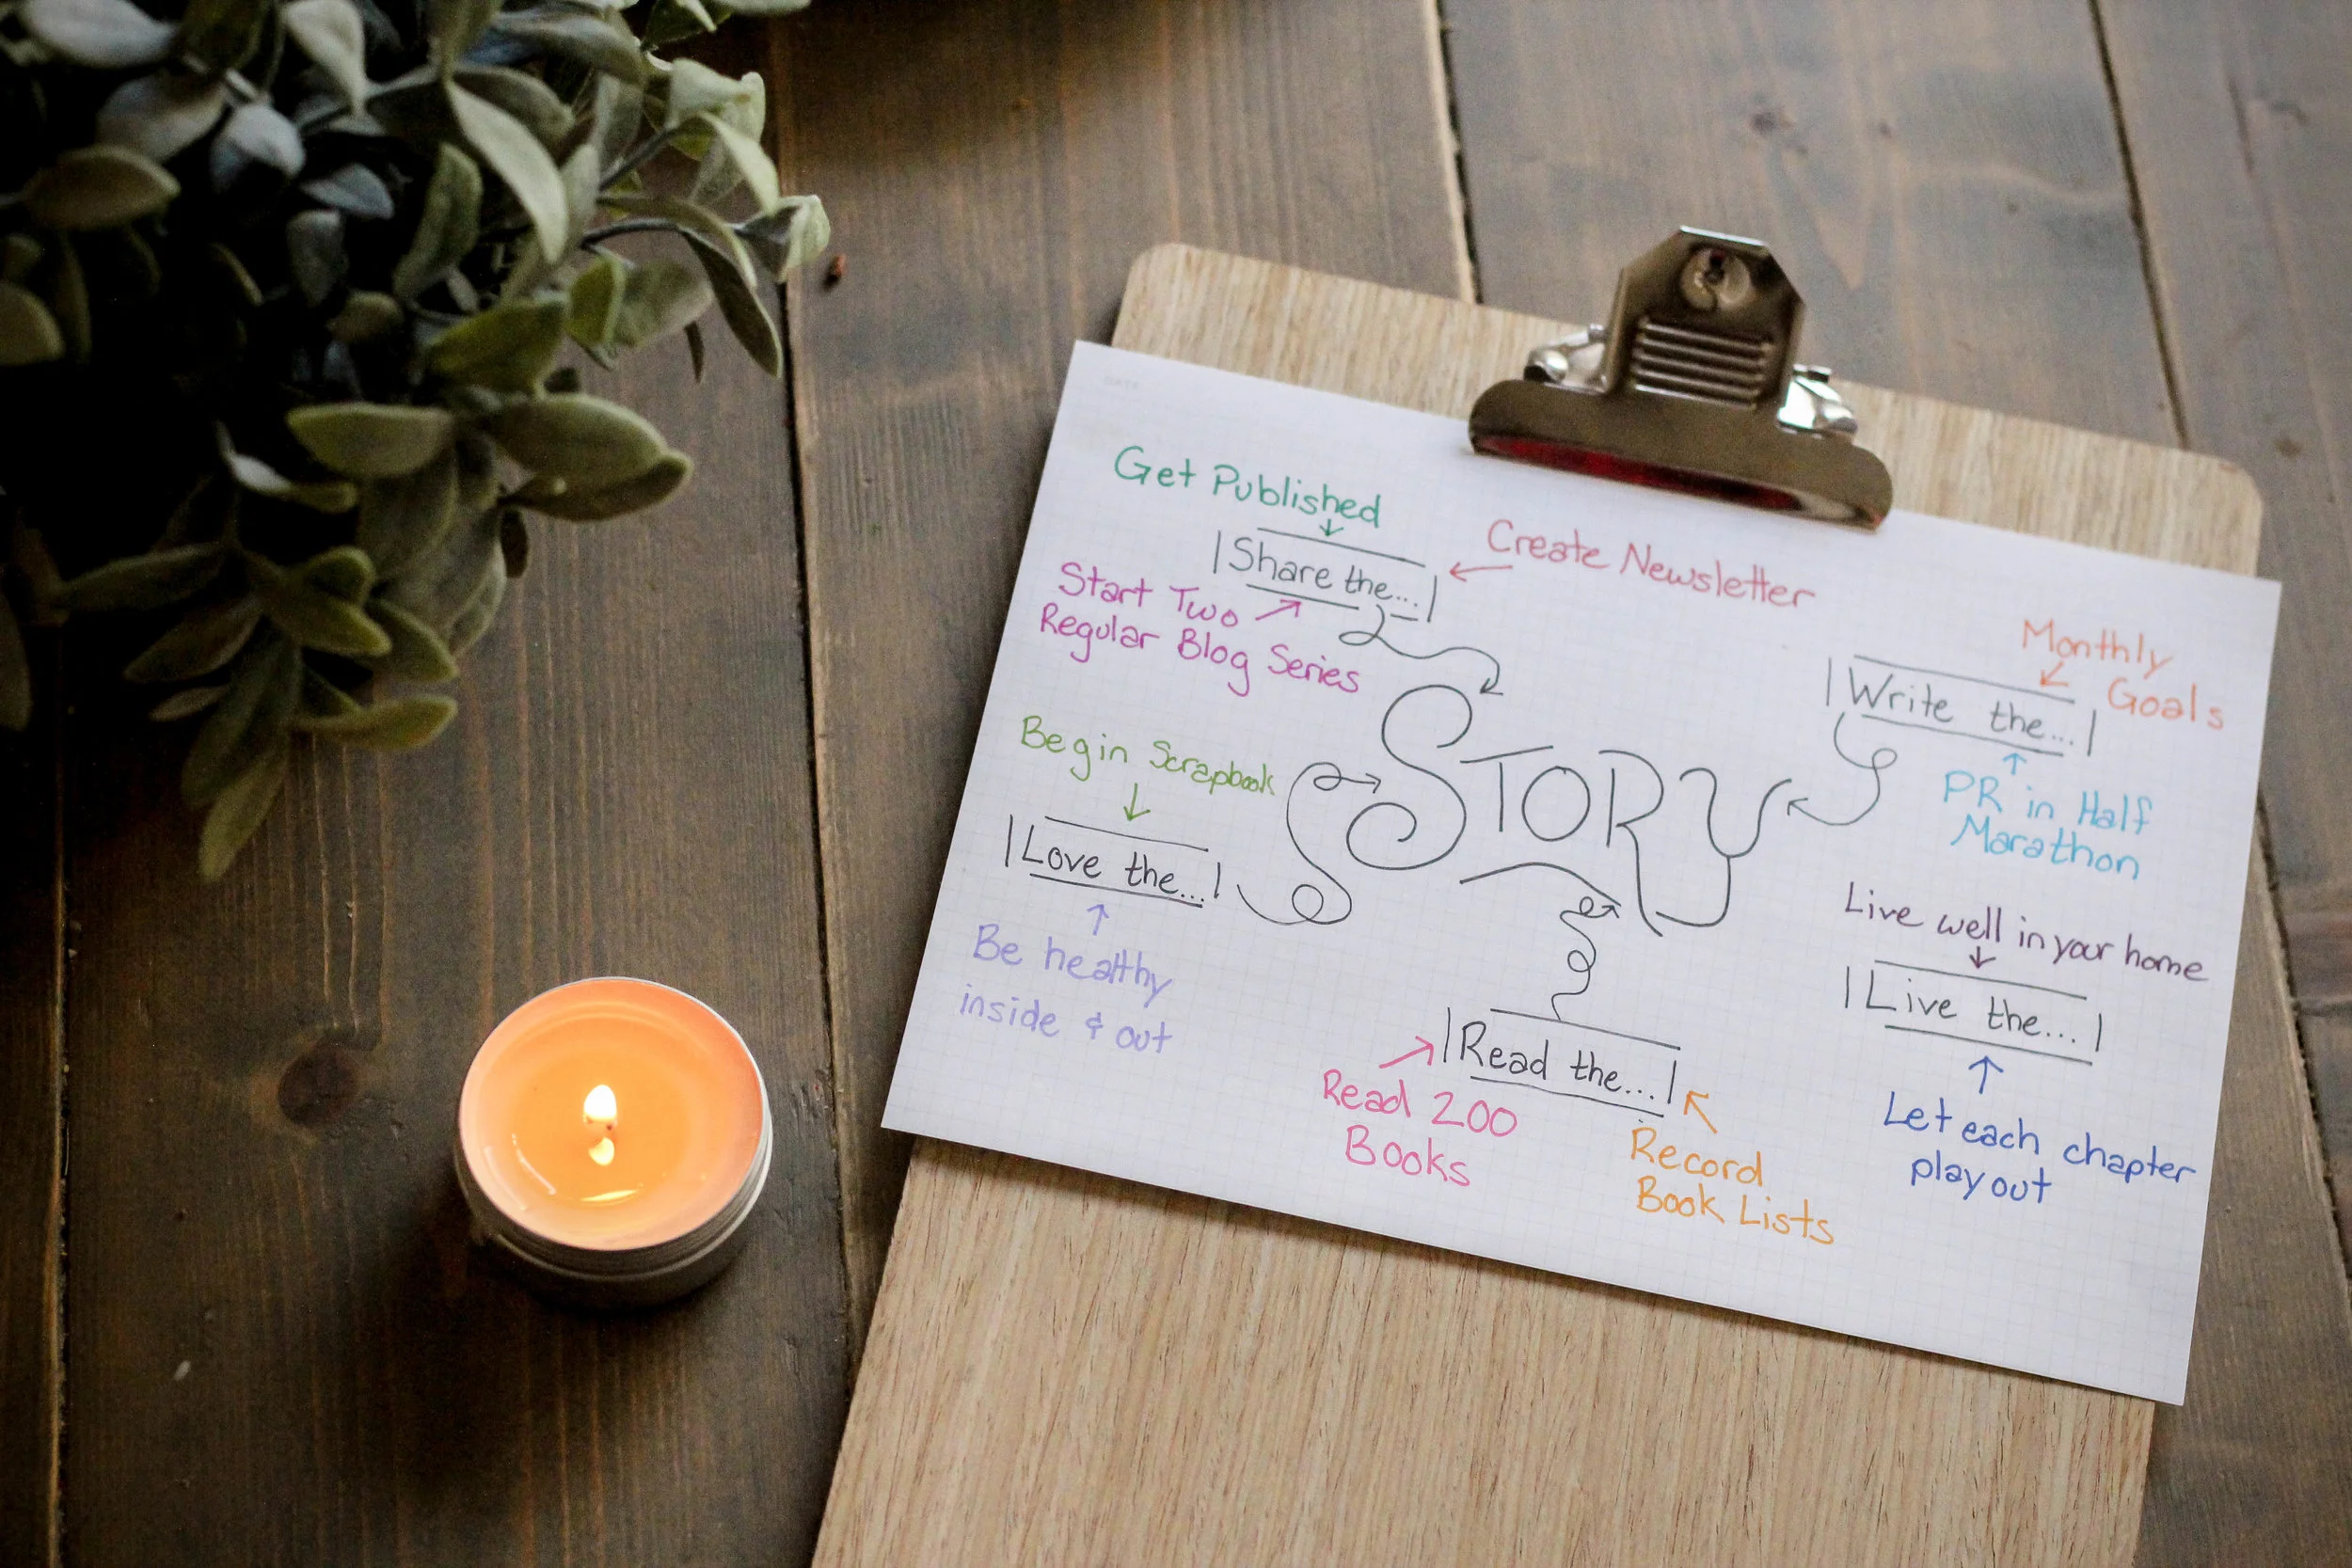 Get Published
Share the...
Create Newsletter
Start Two
Regular Blog Series
Monthly
Goals
Write the...
PR in Half
Marathon
Begin Scrapbook
Love the...
Be healthy
inside & out
STORY
Live well in your home
Live the...
Let each chapter
play out
Read the...
Read 200
Books
Record
Book Lists